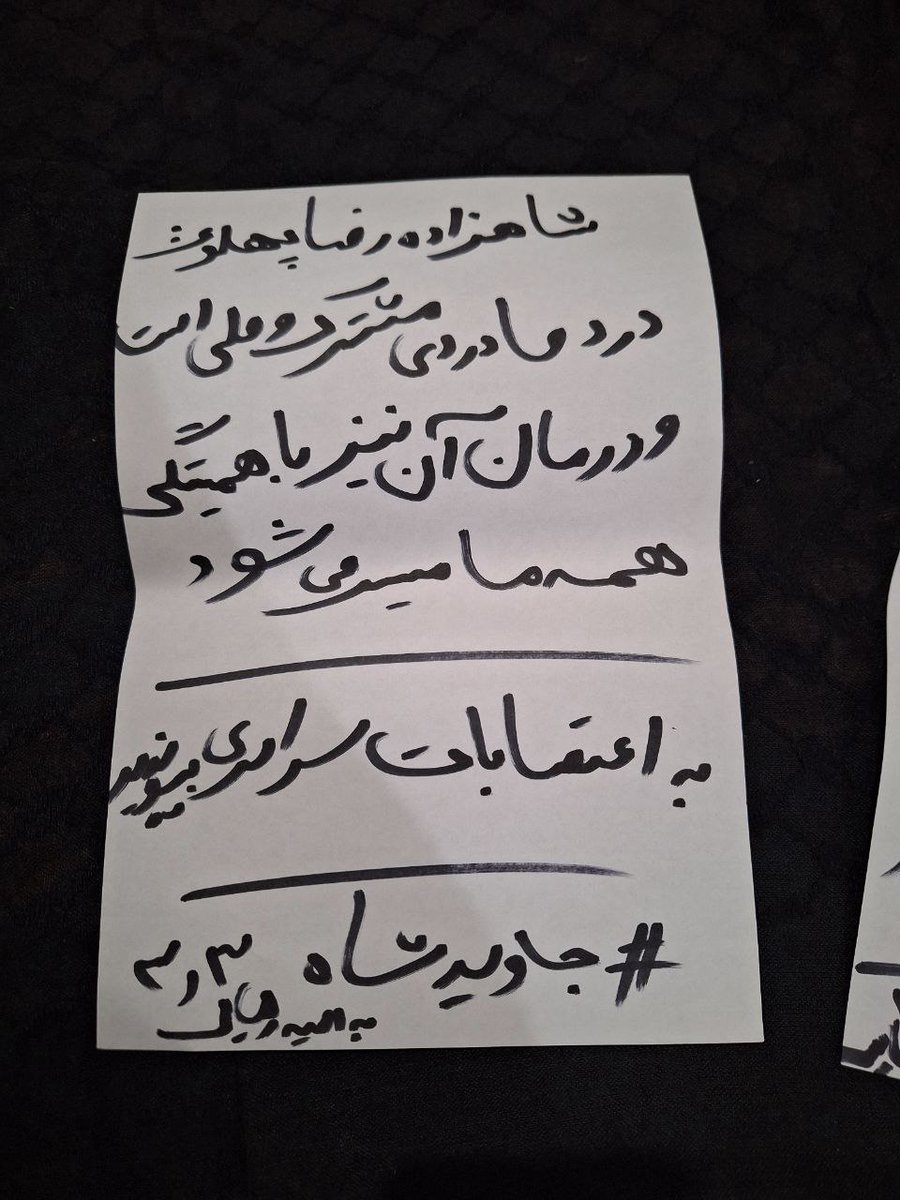 شاهزاده رضا پهلوی:
درد ما دردی مشترک و ملی است
و درمان آن نیز با همبستگی
همه ما میسر می شود
به اعتصابات سراسری بپیوندید
#جاوید شاه
به امید